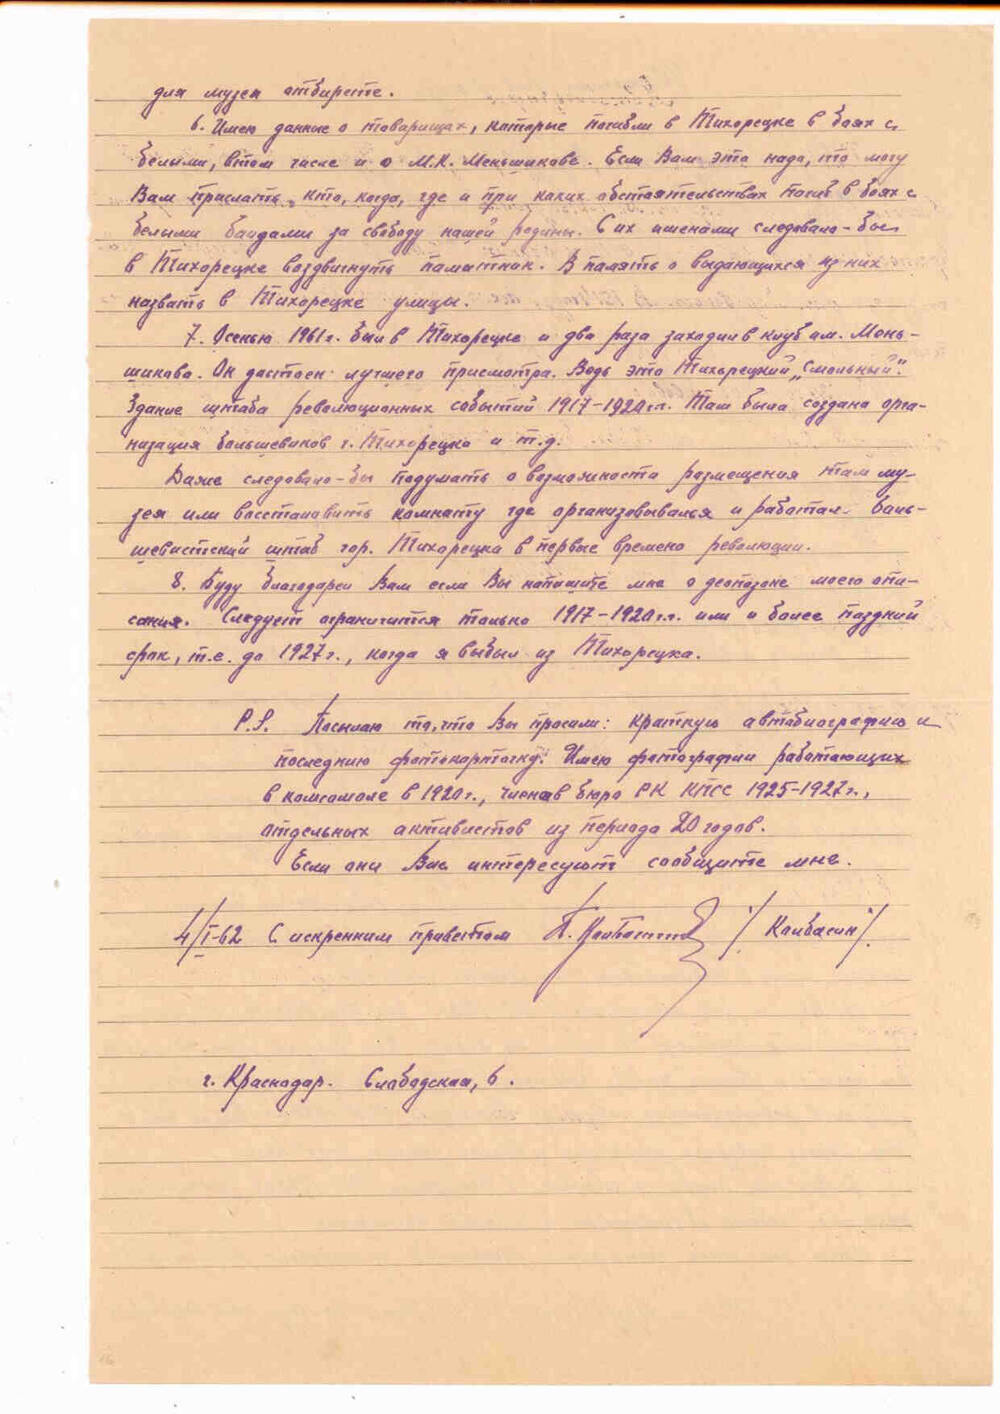 для музея отбирете.
6. Имею данные о товарищах, которые погибли в Тихорецке в боях с
белыми, втом числе и о М.К. Меньшикове. Если Вам это надо, то могу
Вам прислать, кто, когда, где и при каких обстоятельствах погиб в боях с
белыми бандами за свободу нашей родины. С их именами следовало-бы
в Тихорецке воздвигнуть памятник. В память о выдающихся из них
назвать в Тихорецке улицы.
7. Осенью 1961г. был в Тихорецке и два раза заходил в клуб им. Мень-
шикова. Он достоен лучшего присмотра. Ведь это Тихорецкий „Смольный".
Здание штаба революционных событий 1917-1920г.г. Там была создана орга-
низация большевиков г. Тихорецка и т.д.
Даже следовало-бы подумать о возможности размещения там му-
зея или восстановить комнату где организовывался и работал боль-
шевистский штаб гор. Тихорецка в первые времена революции.
8. Буду благодарен Вам если Вы напишите мне о деопозоне моего опи-
сания. Следует ограничится только 1917-1920г.г. или и более поздний
срок, т.е. до 1927г., когда я выбыл из Тихорецка.
P.S. Посылаю то, что Вы просили: краткую автобиографию и
последнию фотокарточку. Имею фотографии работающих
в комсомоле в 1920г., членов бюро РК КПСС 1925-1927г.,
отдельных активистов из периода 20 годов.
Если они Вас интересуют сообщите мне.
4/I-62 С искренним приветом /Колбасин/.
г. Краснодар. Слободская, 6.